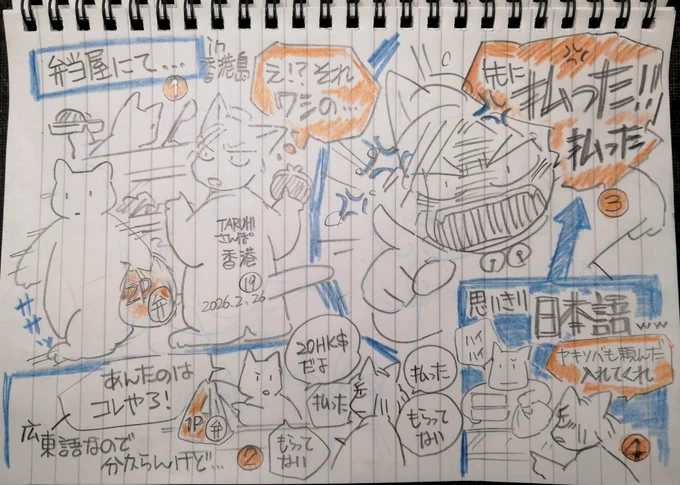 弁当屋にて…
in
香港島
①
え!?それ
ワシの…
先に
払った!!
払った
③
TARUHI
さんぽ
香港
⑲
2026.2.26
2P
弁
ササッ
思いきり
日本語ww
20HK$
だよ
払った
もらって
ない
払った
もらって
ない
あんたのは
コレやろ!
1P
弁
広東語なので
分からんけど…
②
ハイ
ハイ
ヤキソバも頼んだ
入れてくれ
④